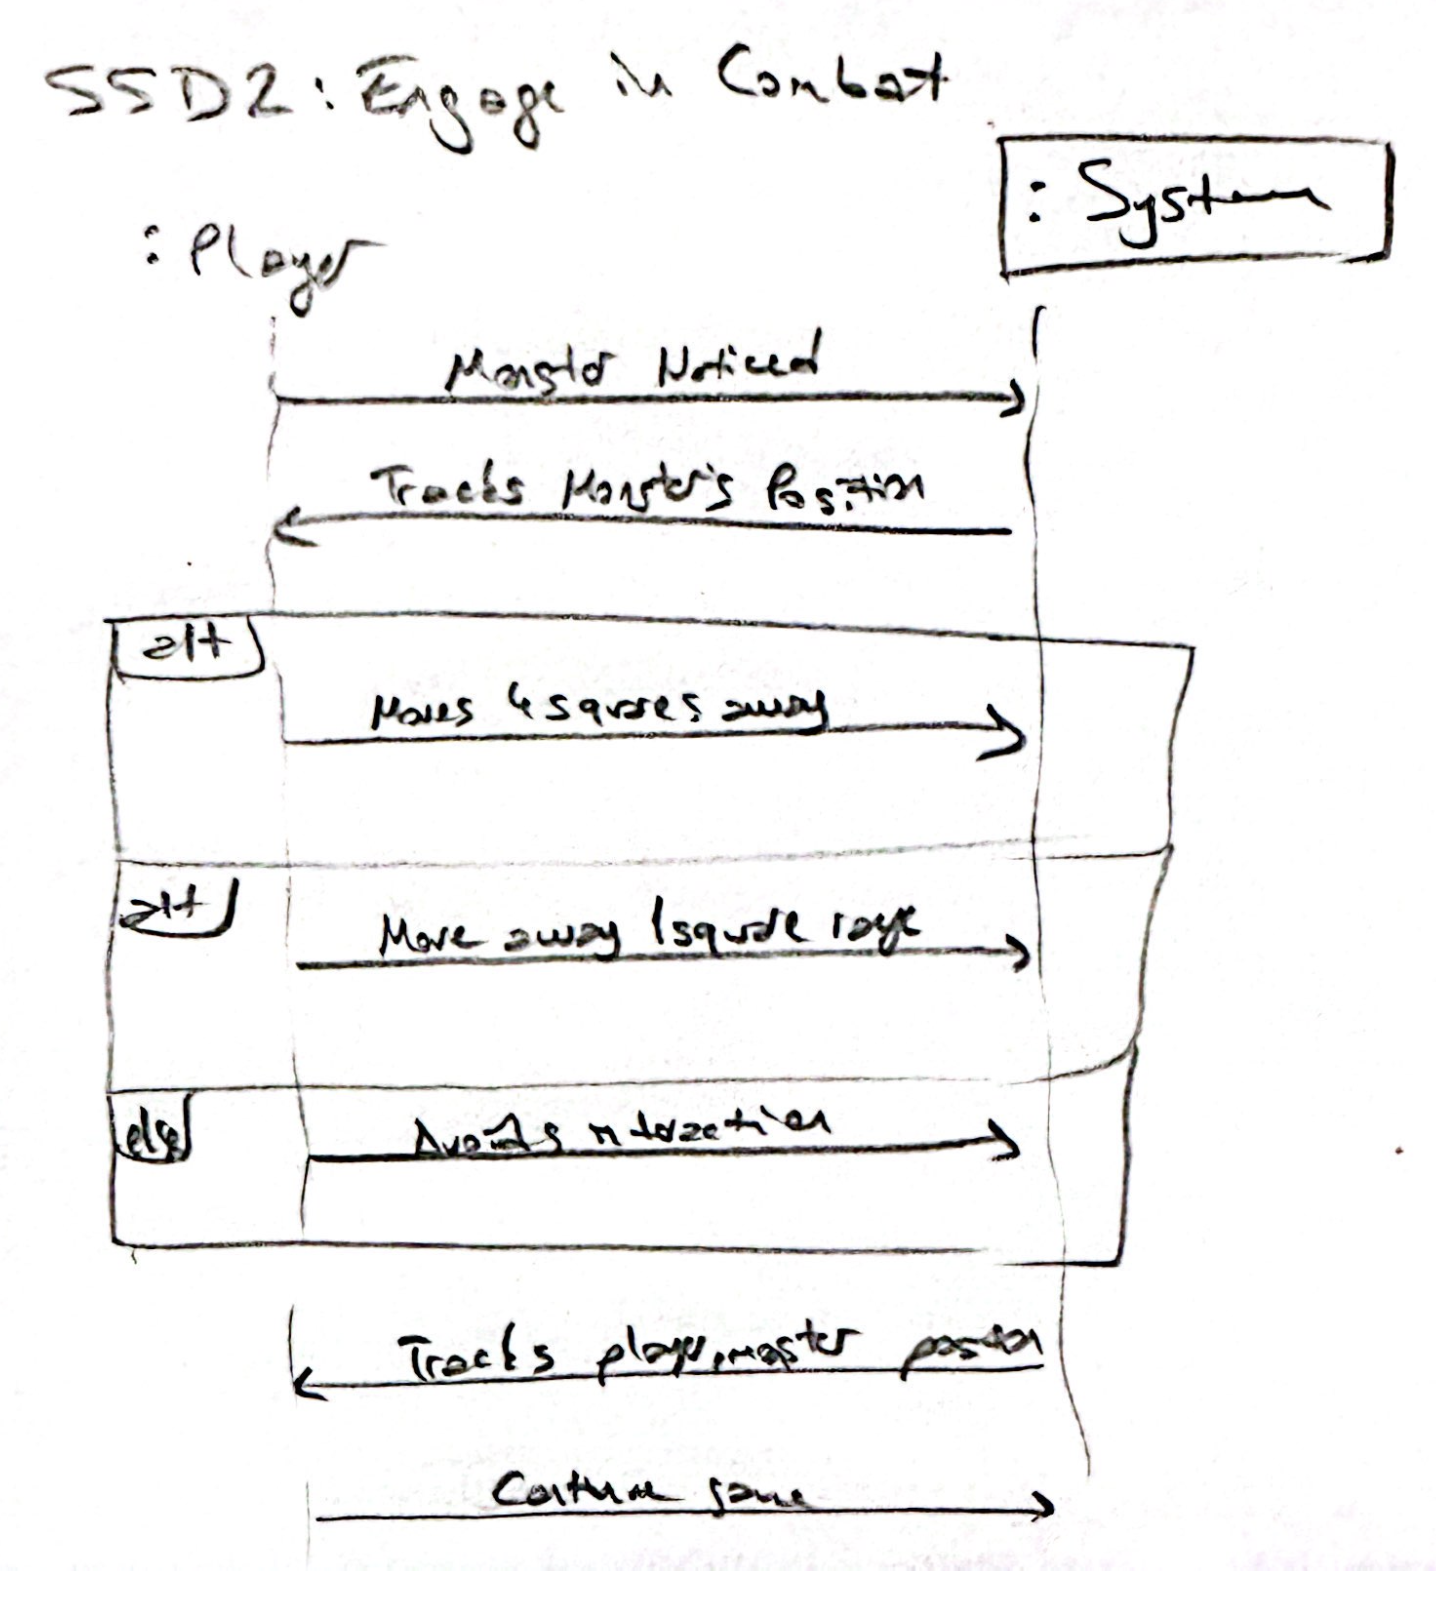 SSD2: Engage in Combat
: System
: Player
Monster Noticed
Tracks Monster's Position
alt
Moves 4 squares away
alt
Move away 1 square range
else
Avoids interaction
Tracks player, monster position
Continue game